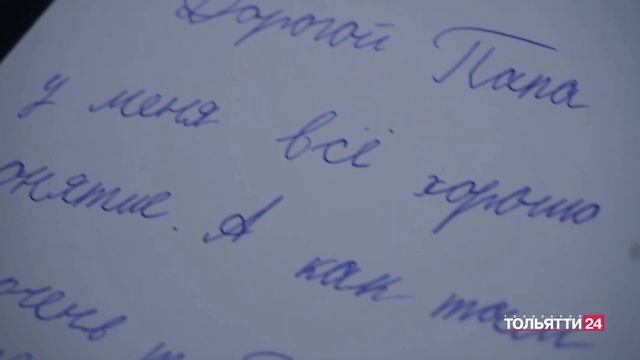 Дорогой Папа
у меня всё хорошо
онятие. А как там
очень
ТОЛЬЯТТИ 24